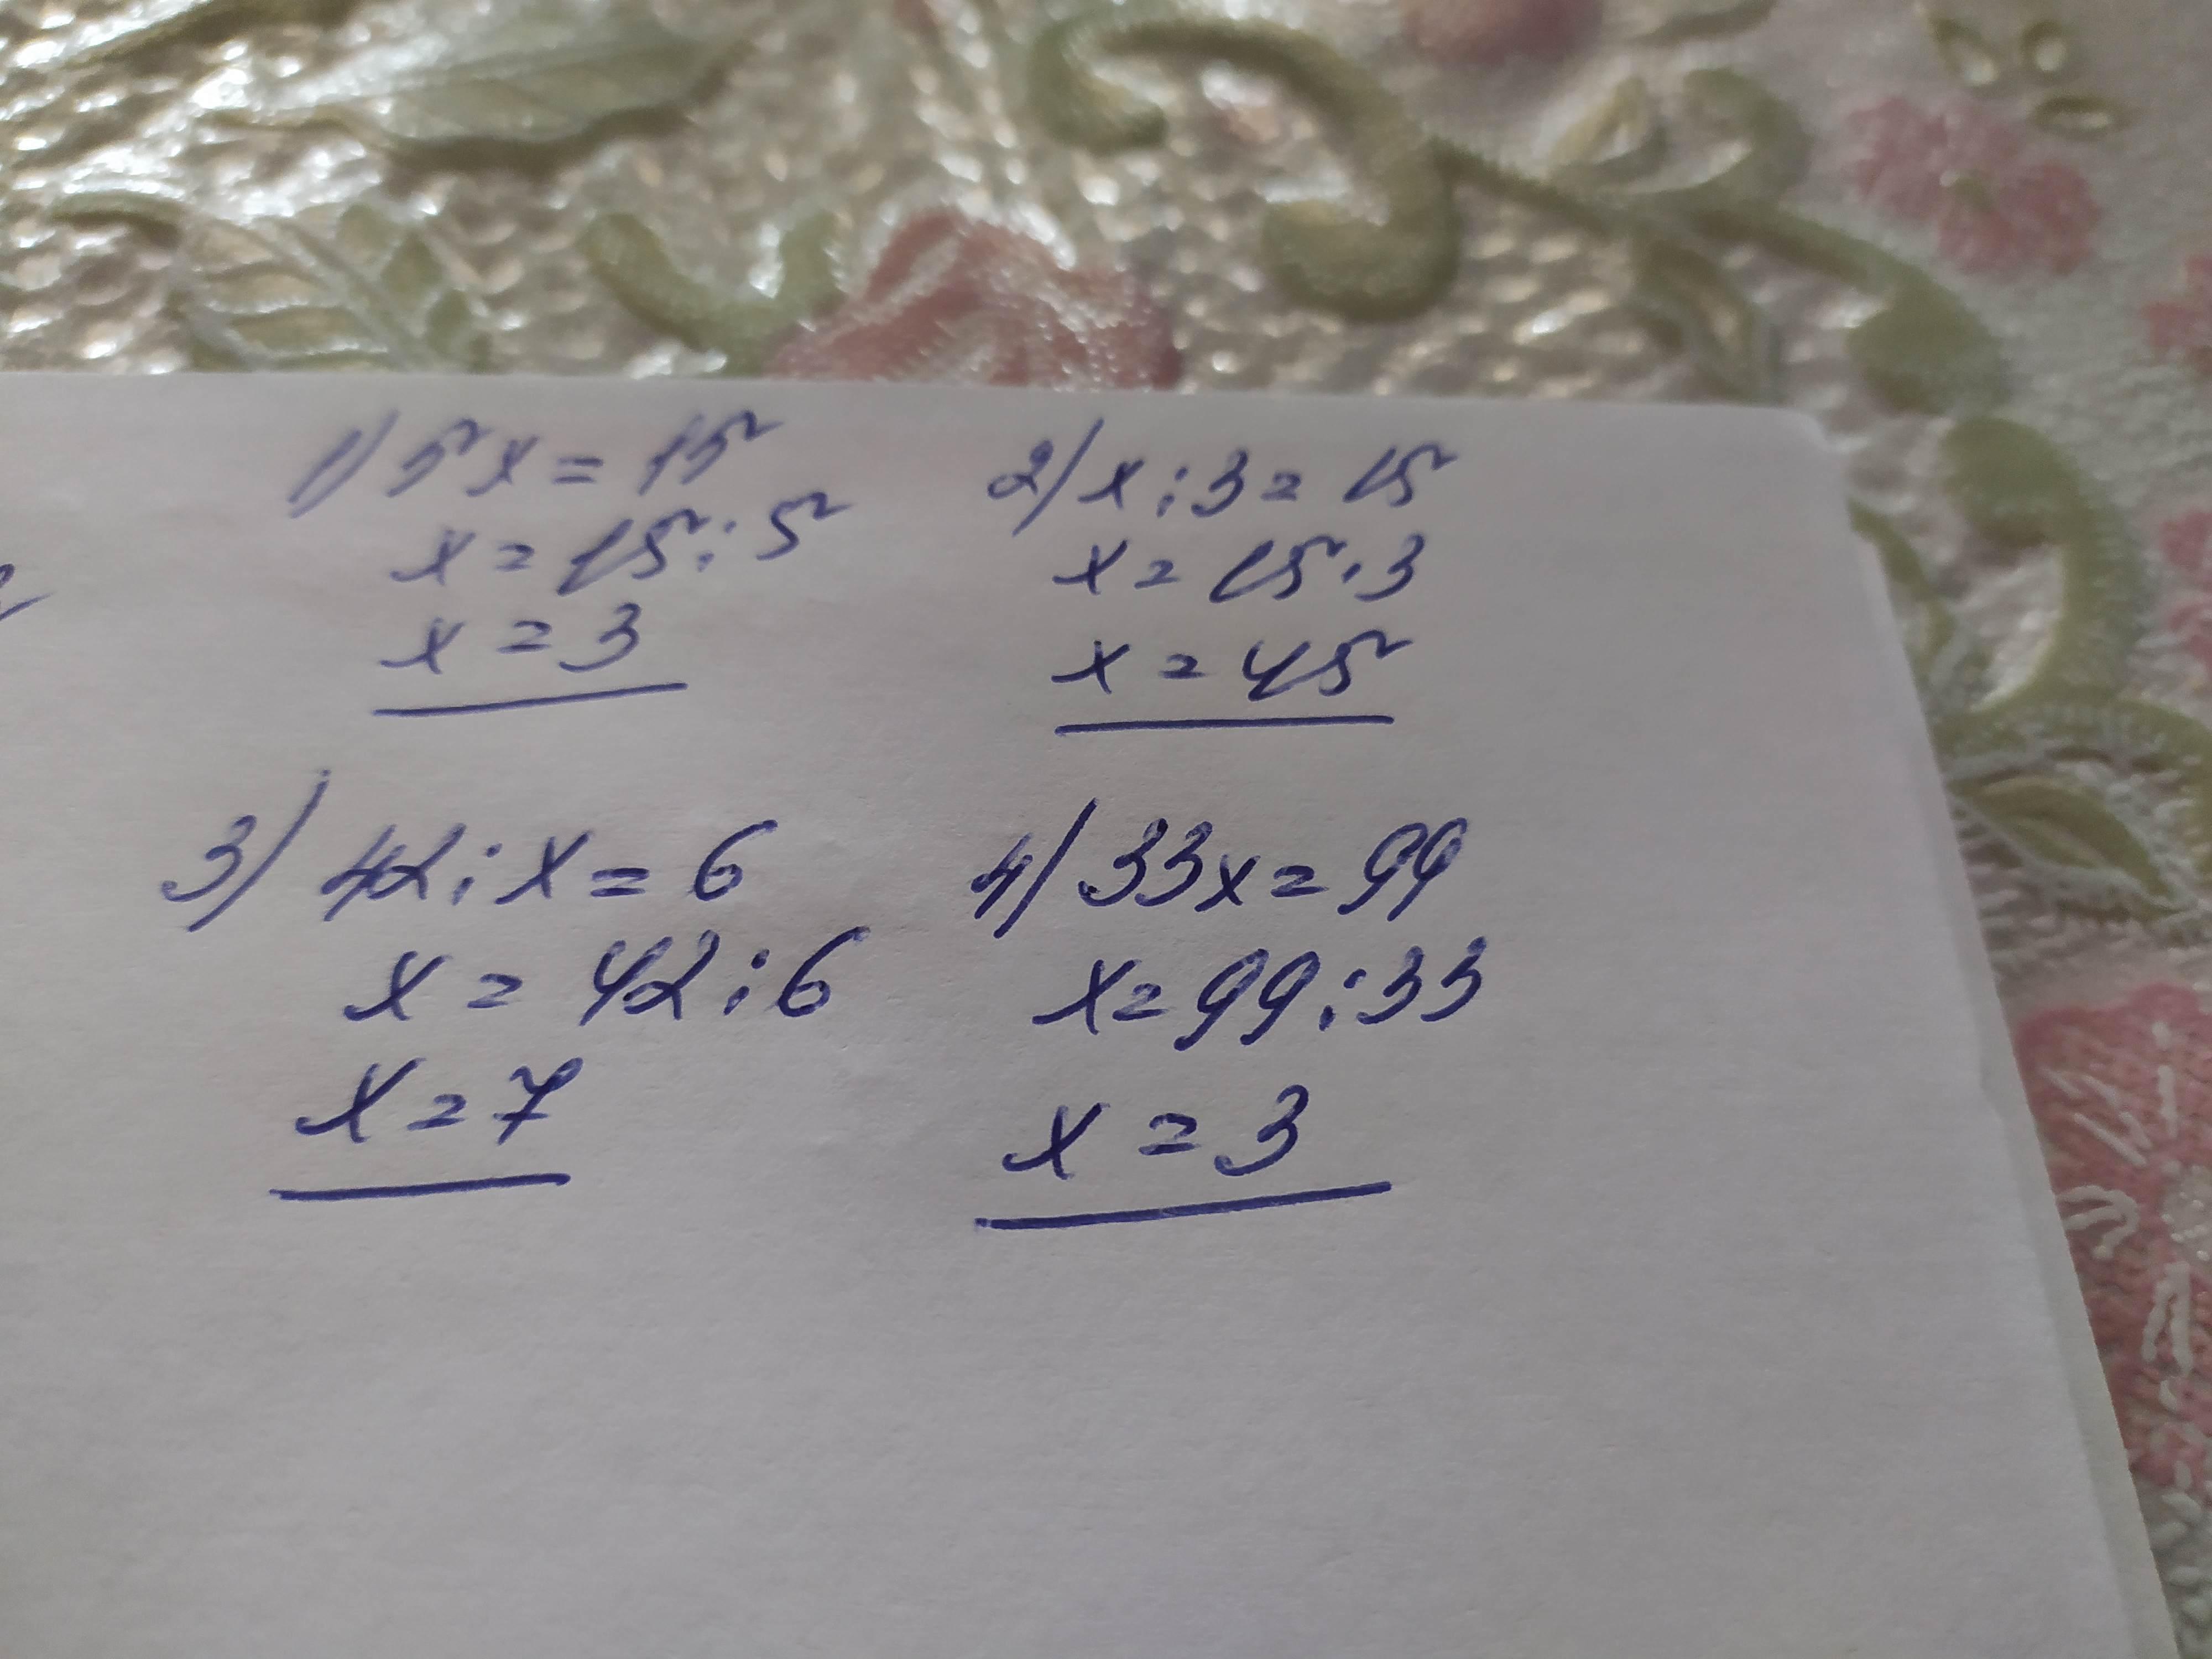 1) 5x = 15
x = 15 : 5
x = 3
2) x : 3 = 15
x = 15 · 3
x = 45
3) 42 : x = 6
x = 42 : 6
x = 7
4) 33x = 99
x = 99 : 33
x = 3